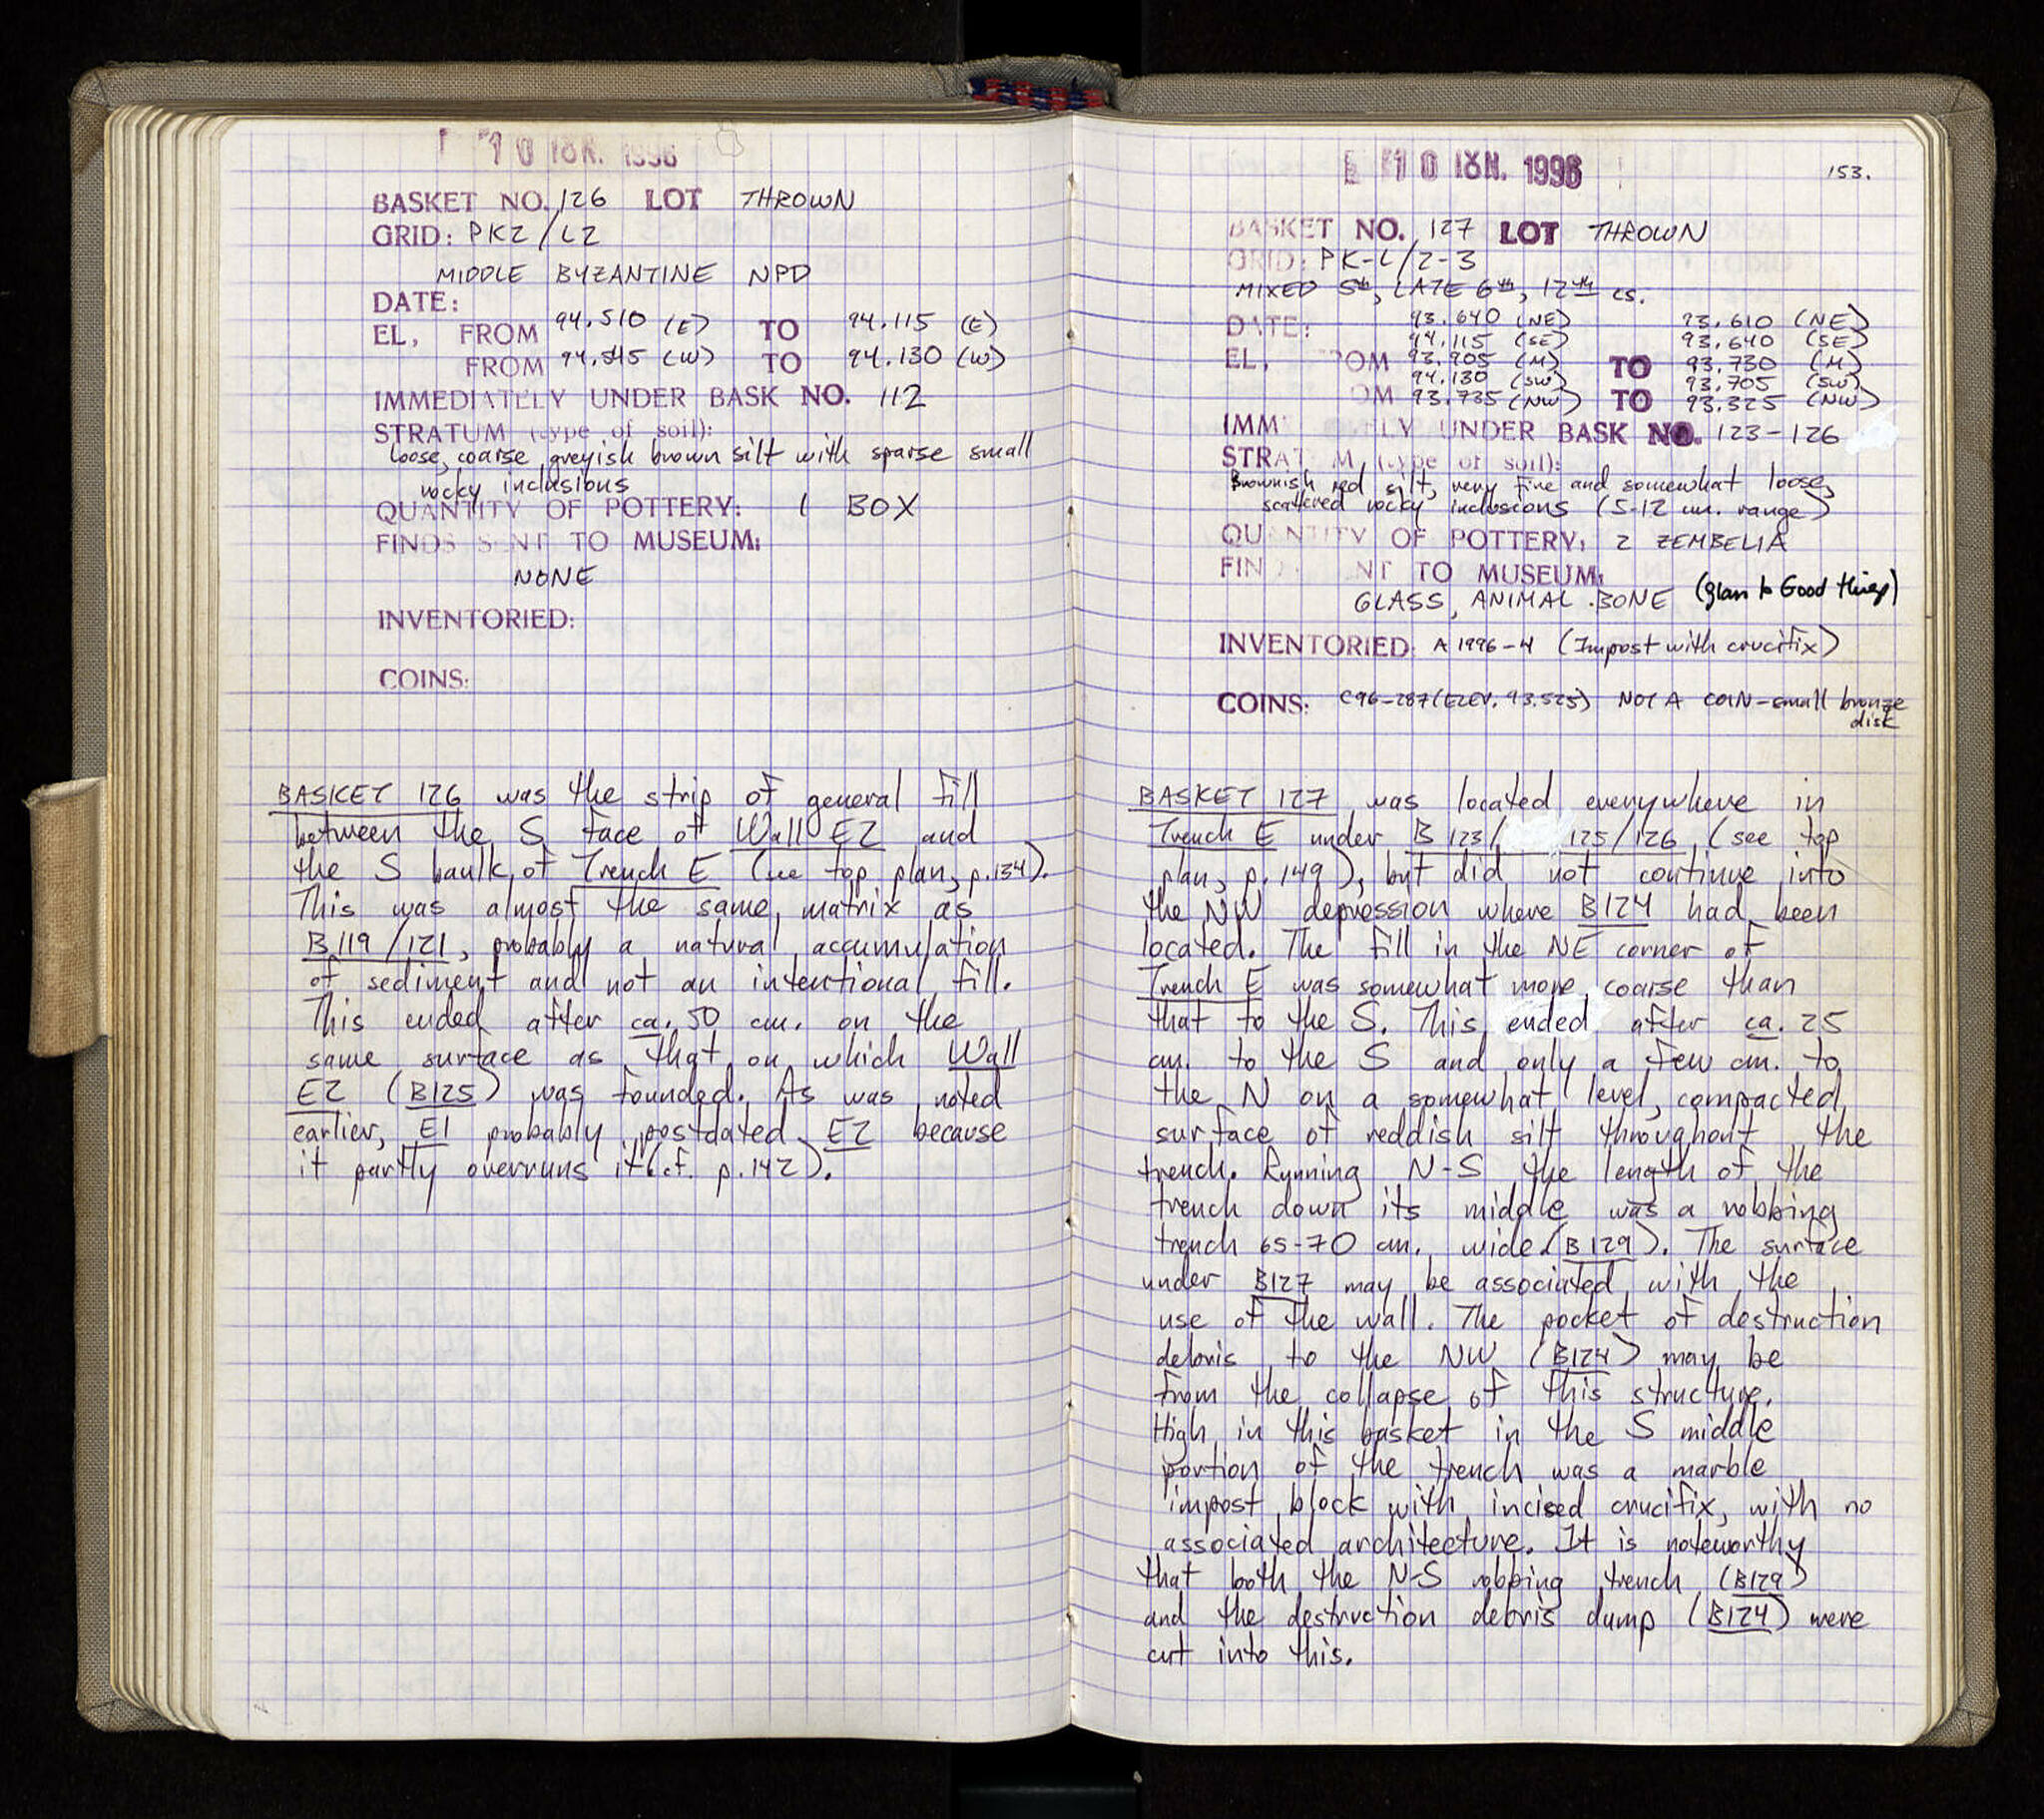 10 IOYN. 1996
BASKET NO. 126 LOT THROWN
GRID: PK2/L2
MIDDLE BYZANTINE NPD
DATE:
EL, FROM 94.510 (E) TO 94.115 (E)
FROM 94.545 (W) TO 94.130 (W)
IMMEDIATELY UNDER BASK NO. 112
STRATUM (type of soil):
loose, coarse greyish brown silt with sparse small
rocky inclusions
QUANTITY OF POTTERY: 1 BOX
FINDS SENT TO MUSEUM:
NONE
INVENTORIED:
COINS:
BASKET 126 was the strip of general fill
between the S face of Wall E2 and
the S baulk of Trench E (see top plan, p.134).
This was almost the same matrix as
B119/121, probably a natural accumulation
of sediment and not an intentional fill.
This ended after ca. 50 cm. on the
same surface as that on which Wall
E2 (B125) was founded. As was noted
earlier, E1 probably postdated E2 because
it partly overruns it (cf. p.142).
10 IOYN. 1996
153.
BASKET NO. 127 LOT THROWN
GRID: PK-L/2-3
MIXED 5th, LATE 6th, 12th cs.
DATE: 93.640 (NE) 93.610 (NE)
94.115 (SE) 93.640 (SE)
EL, FROM 93.905 (M) TO 93.730 (M)
94.130 (SW) 93.705 (SW)
FROM 93.735 (NW) TO 93.325 (NW)
IMMEDIATELY UNDER BASK NO. 123-126
STRATUM (type of soil):
Brownish red silt, very fine and somewhat loose,
scattered rocky inclusions (5-12 cm. range)
QUANTITY OF POTTERY: 2 ZEMBELIA
FINDS SENT TO MUSEUM:
GLASS, ANIMAL BONE (glass to Good things)
INVENTORIED: A 1996-4 (Impost with crucifix)
COINS: C96-287 (ELEV. 93.525) NOT A COIN-small bronze
disk
BASKET 127 was located everywhere in
Trench E under B 123/ 125/126 (see top
plan, p. 149), but did not continue into
the NW depression where B124 had been
located. The fill in the NE corner of
Trench E was somewhat more coarse than
that to the S. This ended after ca. 25
cm. to the S and only a few cm. to
the N on a somewhat level, compacted
surface of reddish silt throughout the
trench. Running N-S the length of the
trench down its middle was a robbing
trench 65-70 cm. wide (B129). The surface
under B127 may be associated with the
use of the wall. The pocket of destruction
debris to the NW (B124) may be
from the collapse of this structure.
High in this basket in the S middle
portion of the trench was a marble
impost block with incised crucifix, with no
associated architecture. It is noteworthy
that both the N-S robbing trench (B129)
and the destruction debris dump (B124) were
cut into this.